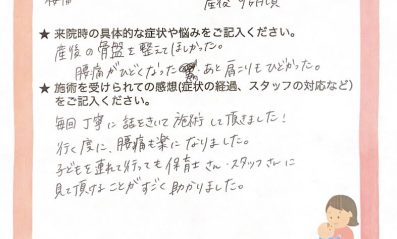 腰痛
産後 9ヶ月頃
★ 来院時の具体的な症状や悩みをご記入ください。
産後の骨盤を整えてほしかった。
腰痛がひどくなった あと肩こりもひどかった。
★ 施術を受けられての感想(症状の経過、スタッフの対応など)
をご記入ください。
毎回丁寧に話をきいて施術して頂きました!
行く度に、腰痛も楽になりました。
子どもを連れて行っても保育士さん・スタッフさんに
見て頂けることがすごく助かりました。